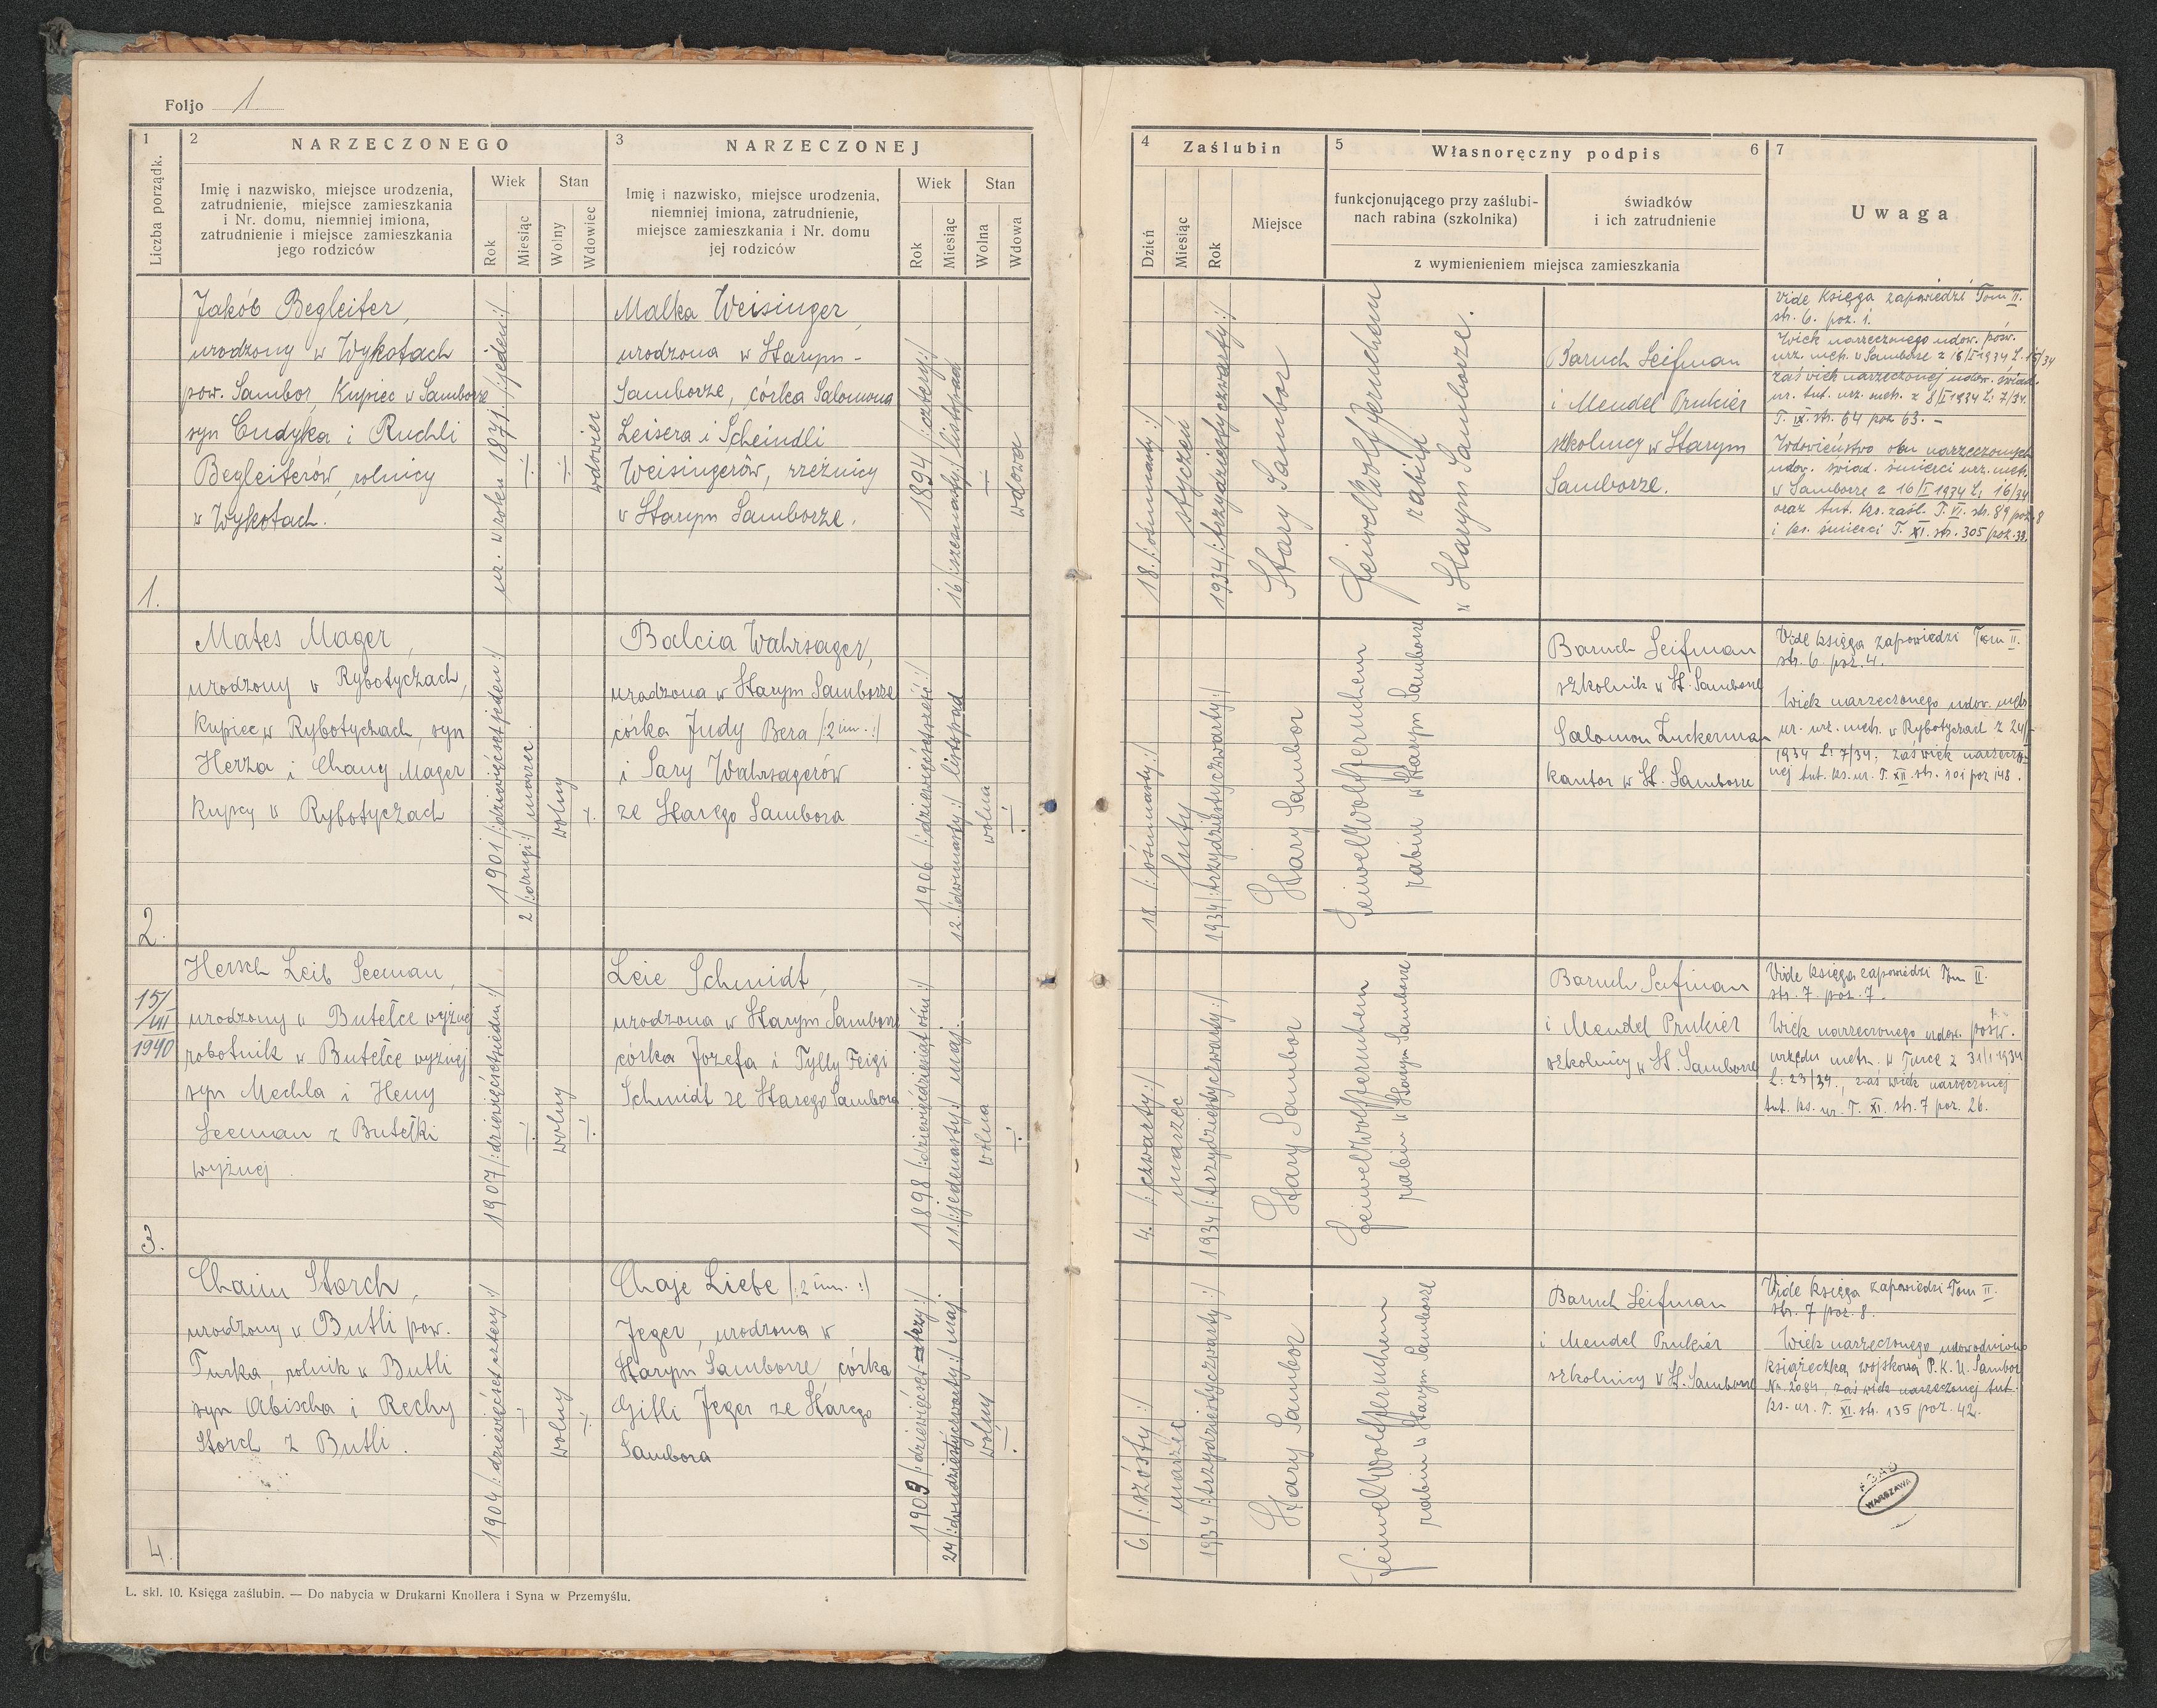 Foljo 1
1
Liczba porządk.
2
NARZECZONEGO
Imię i nazwisko, miejsce urodzenia,
zatrudnienie, miejsce zamieszkania
i Nr. domu, niemniej imiona,
zatrudnienie i miejsce zamieszkania
jego rodziców
Wiek
Rok
Miesiąc
Stan
Wolny
Wdowiec
3
NARZECZONEJ
Imię i nazwisko, miejsce urodzenia,
niemniej imiona, zatrudnienie,
miejsce zamieszkania i Nr. domu
jej rodziców
Wiek
Rok
Miesiąc
Stan
Wolna
Wdowa
4
Zaślubin
Dzień
Miesiąc
Rok
Miejsce
5
Własnoręczny podpis
6
funkcjonującego przy zaślubi-
nach rabina (szkolnika)
świadków
i ich zatrudnienie
z wymienieniem miejsca zamieszkania
7
Uwaga
1.
Jakób Begleiter,
urodzony w Wykotach
pow. Sambor, Kupiec w Samborze
syn Cudyka i Ruchli
Begleiterów, rolnicy
w Wykotach.
ur. w roku 1871 /:jeden:/
wdowiec
Malka Weisinger,
urodzona w Starym-
Samborze, córka Salomona
Leisera i Scheindli
Weisingerów, rzeźnicy
w Starym Samborze.
1894 /:cztery:/
16 /:szesnasty:/ listopad
wdowa
18. /:ośmnasty:/
styczeń
1934 /:trzydziestyczwarty:/
Stary Sambor
Feiwel Wolf Jeruchem
rabin
w Starym Samborze.
Baruch Seifman
i Mendel Prukier
szkolnicy w Starym
Samborze.
Vide Księga zapowiedzi Tom II.
str. 6. poz. 1.
Wiek narzeczonego udow. pośw.
urz. metr. w Samborze z 16/I 1934 L. 15/34
zaś wiek narzeczonej udow. świad.
ur. tut. urz. metr. z 8/I 1934 L: 7/34.
T. IX. str. 64 poz. 63. -
Wdowieństwo obu narzeczonych
udow. świad. śmierci urz. metr.
w Samborze z 16/I 1934 L: 16/34
oraz tut. ks. zaśl. T. VI. str. 89 poz. 8
i ks. śmierci T. XI. str. 305 poz. 39.
2.
Mates Mager,
urodzony w Rybotyczach,
Kupiec w Rybotyczach, syn
Herza i Chany Mager
kupcy w Rybotyczach
1901 /:dziewięćset jeden:/
2 /:drugi:/ marzec.
wolny
Balcia Wahrsager,
urodzona w Starym Samborze
córka Judy Bera /:2 im.:/
i Sary Wahrsagerów
ze Starego Sambora
1906 /:dziewięćsetsześć:/
12. /:dwunasty:/ listopad
wolna
18. /:ośmnasty:/
luty
1934 /:trzydziestyczwarty:/
Stary Sambor
Feiwel Wolf Jeruchem
rabin w Starym Samborze
Baruch Seifman
szkolnik w St. Samborze
Salomon Zuckerman
kantor w St. Samborze
Vide księga zapowiedzi Tom II.
str. 6. poz. 4.
Wiek narzeczonego udow. metr.
ur. urz. metr. w Rybotyczach z 24/I
1934 L: 7/34, zaś wiek narzeczo-
nej tut. ks. ur. T. XII. str. 101 poz 148.
3.
15/
/VII
1940
Hersch Leib Seeman,
urodzony w Butelce wyżnej
robotnik w Butelce wyżnej
syn Mechla i Heny
Seeman z Butelki
wyżnej.
1907 /:dziewięćsetsiedem:/
wolny
Leie Schmidt,
urodzona w Starym Samborze
córka Józefa i Tylly Feigi
Schmidt ze Starego Sambora
1898 /:dziewięćdziesiątośm:/
11. /:jedenasty:/ maj.
wolna
4. /:czwarty:/
marzec
1934 /:trzydziestyczwarty:/
Stary Sambor
Feiwel Wolf Jeruchem
rabin w Starym Samborze
Baruch Seifman
i Mendel Prukier
szkolnicy w St. Samborze
Vide Księga zapowiedzi Tom II
str. 7. poz. 7.
Wiek narzeczonego udow. pośw.
urzędu metr. w Turce z 31/1 1934
L: 23/34, zaś wiek narzeczonej
tut. ks. ur. T. XI. str. 7 poz. 26.
4.
Chaim Storch,
urodzony w Butli pow.
Turka, rolnik w Butli
syn Abischa i Rechy
Storch z Butli.
1904 /:dziewięćsetcztery:/
wolny
Chaje Liebe /:2 im.:/
Jeger, urodzona w
Starym Samborze, córka
Gitli Jeger ze Starego
Sambora
1903 /:dziewięćset trzy:/
24 /:dwudziestyczwarty:/ maj.
wolny
6. /:szósty:/
marzec
1934 /:trzydziestyczwarty:/
Stary Sambor
Feiwel Wolf Jeruchem
rabin w Starym Samborze
Baruch Seifman
i Mendel Prukier
szkolnicy w St. Samborze
Vide Księga zapowiedzi Tom II.
str. 7 poz. 8.
Wiek narzeczonego udowodniono
książeczką wojskową P.K.U. Sambor
Nr. 2084, zaś wiek narzeczonej tut.
ks. ur. T. XI. str. 135 poz. 42.
AGAD
WARSZAWA
L. skł. 10. Księga zaślubin. — Do nabycia w Drukarni Knollera i Syna w Przemyślu.